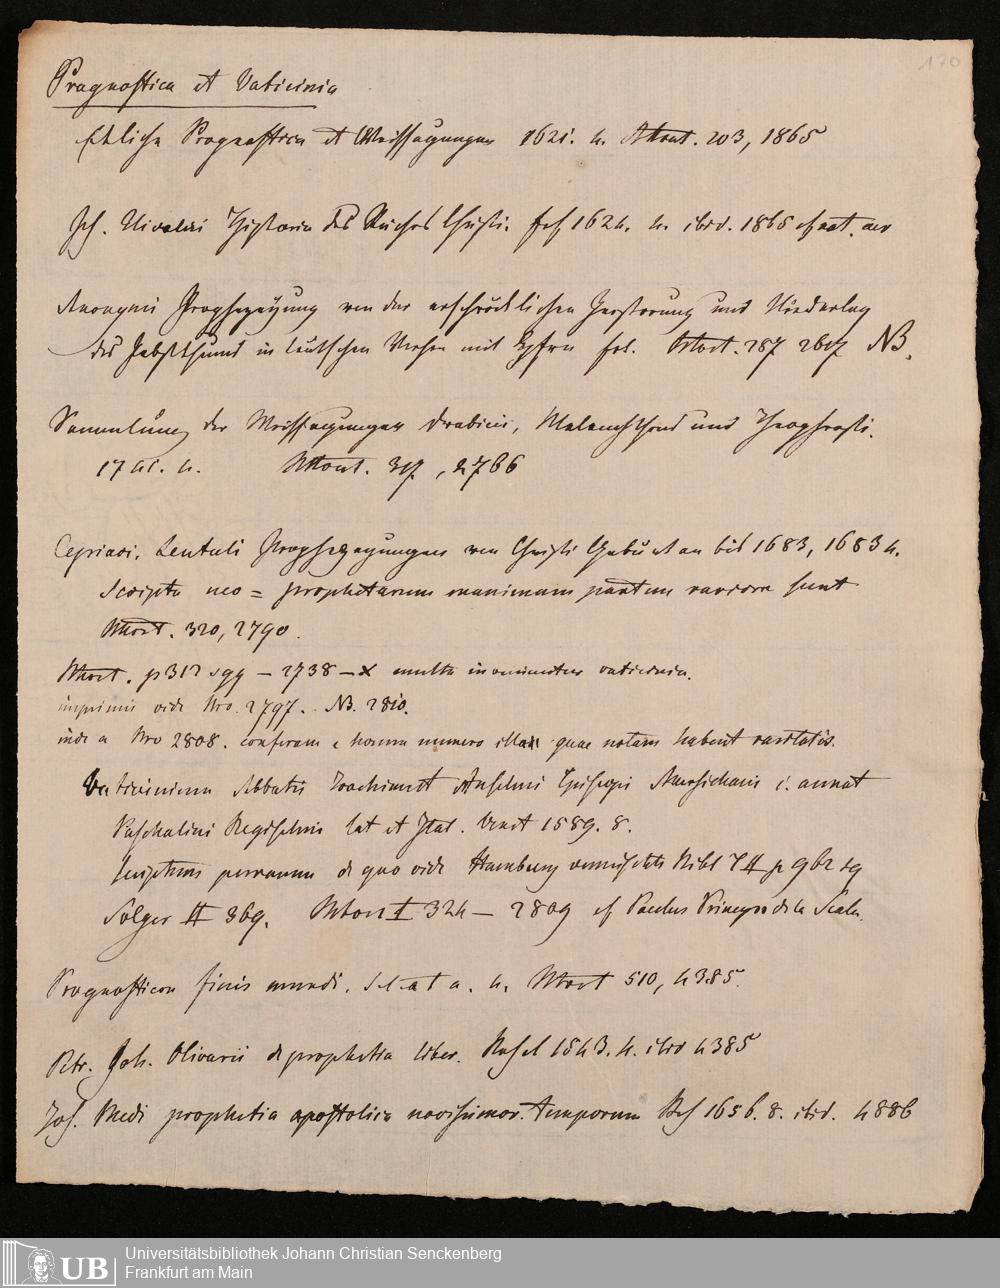 170
Prognostica et Vaticinia
Etliche Prognostica et Weissagungen 1621. 4. 203, 1865
Joh. Historia des Reiches Christi. 1624. 4. ibid. 1865
Anonymi Prophezeyung von der erschröcklichen Zerstörung und Niederlag
des Pabstthums in teutschen Versen mit Kpfrn fol. 287 NB.
Sammlung der Weissagungen Drabicii, Melanchthons und Theophrasti.
4. 317, 2766
Cypriani. Lentuli Prophezeyungen von Christi Geburt an bis 1683, 1683 4.
Scripta neo = prophetarum maximam partem rariora sunt
320, 2790.
p 317 sqq – 2738 – multa vaticinia.
imprimis vide Nro. 2797. NB. 2810.
inde a Nro 2808. conferam e numero quae notam habent raritatis.
Vaticinium Abbatis Joachimi et Anselmi Episcopi c. annot
Paschalini Regiselmi lat et Ital. Venet 1589. 8.
Scriptum perrarum de quo vide Hamburg vermischte Bibl p 962 sq
Solger II 369. I 324 – 2809 cf Paulus Princeps de la Scala.
Prognosticon finis mundi. s. l. et a. 4. 510, 4385.
Petr. Joh. Olivarii de prophetia liber. Basel 1543. 4. ibid 4385
Jos. Medi prophetia apostolica novissimor. temporum Bas 1656. 8. ibid. 4886
UB
Universitätsbibliothek Johann Christian Senckenberg
Frankfurt am Main